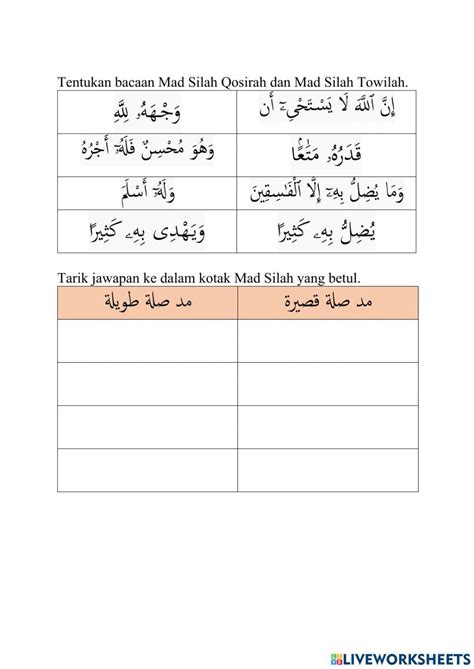 Tentukan bacaan Mad Silah Qosirah dan Mad Silah Towilah.
إِنَّ ٱللَّهَ لَا يَسْتَحْىِۦٓ أَن
وَجْهَهُۥ لِلَّهِ
قَدَرُهُۥ مَتَٰعًۢا
وَهُوَ مُحْسِنٌ فَلَهُۥٓ أَجْرُهُ
وَمَا يُضِلُّ بِهِۦٓ إِلَّا ٱلْفَٰسِقِينَ
وَلَهُۥٓ أَسْلَمَ
يُضِلُّ بِهِۦ كَثِيرًا
وَيَهْدِى بِهِۦ كَثِيرًا
Tarik jawapan ke dalam kotak Mad Silah yang betul.
مد صلة قصيرة
مد صلة طويلة
LIVEWORKSHEETS